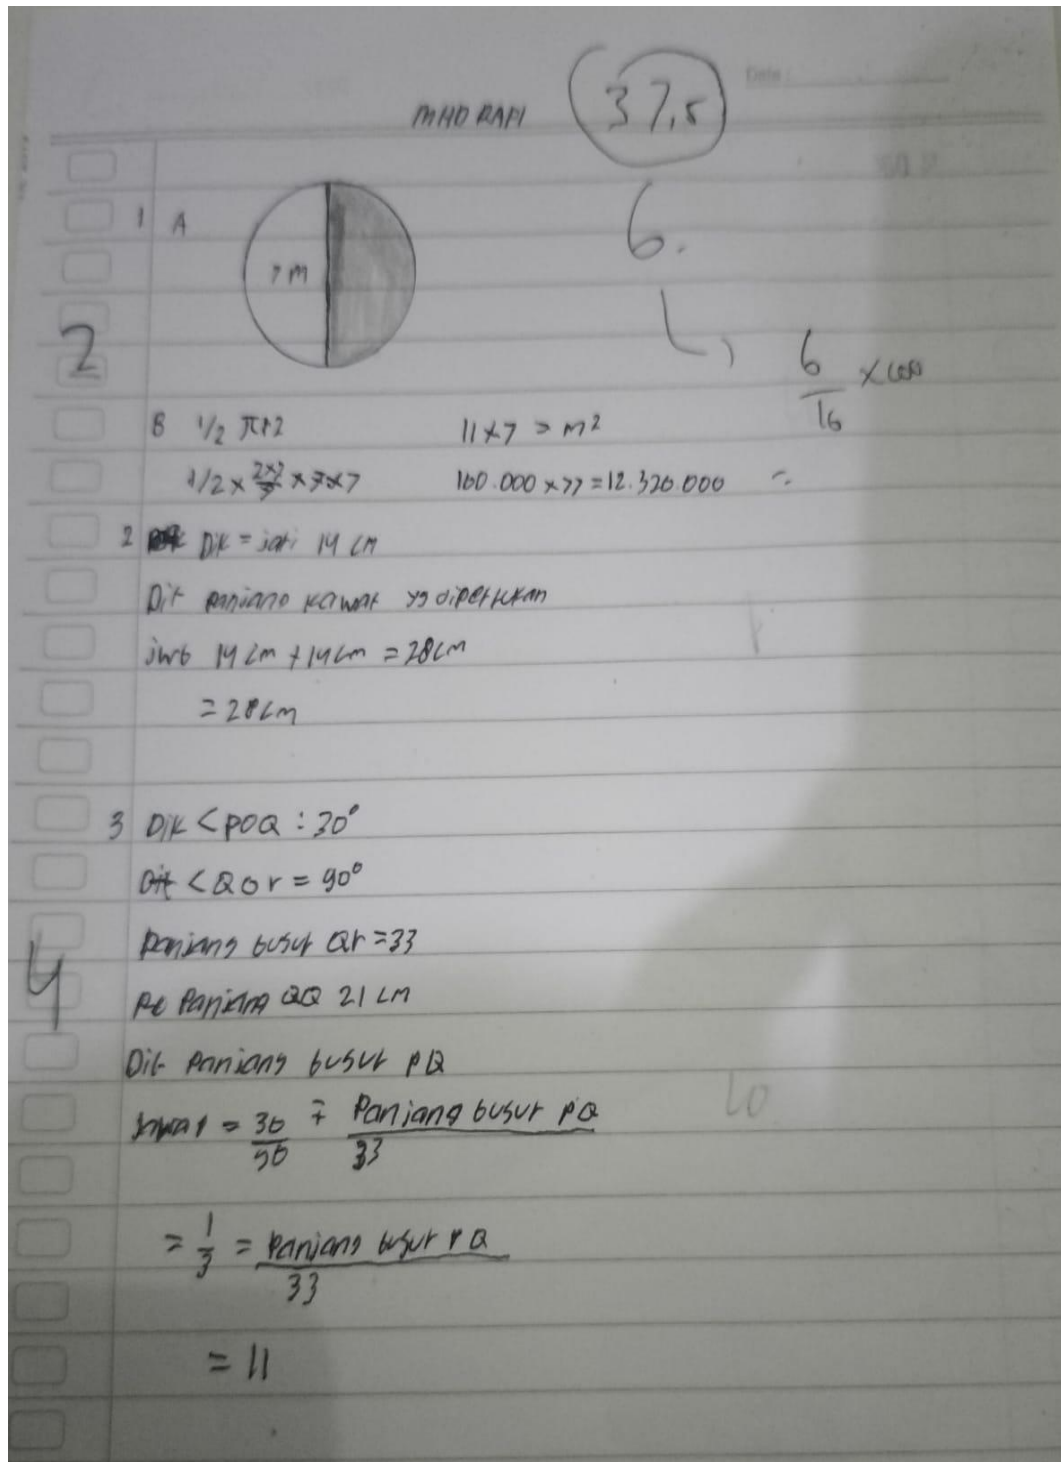 Date:
MHD RAPI
37,5
6.
1 A
7 m
2
6/16 × 100
B 1/2 πr2
11×7 = m²
1/2 × 22/7 × 7×7
160.000 × 77 = 12.320.000
2 Dik = jari 14 cm
Dit panjang kawat yg diperlukan
jwb 14 cm + 14 cm = 28 cm
= 28 cm
3 Dik < POQ : 30°
< QOr = 90°
Panjang busur Qr = 33
4
Panjang OQ 21 cm
Dit Panjang busur PQ
Jawab = 30/90 = Panjang busur PQ/33
= 1/3 = Panjang busur PQ/33
= 11